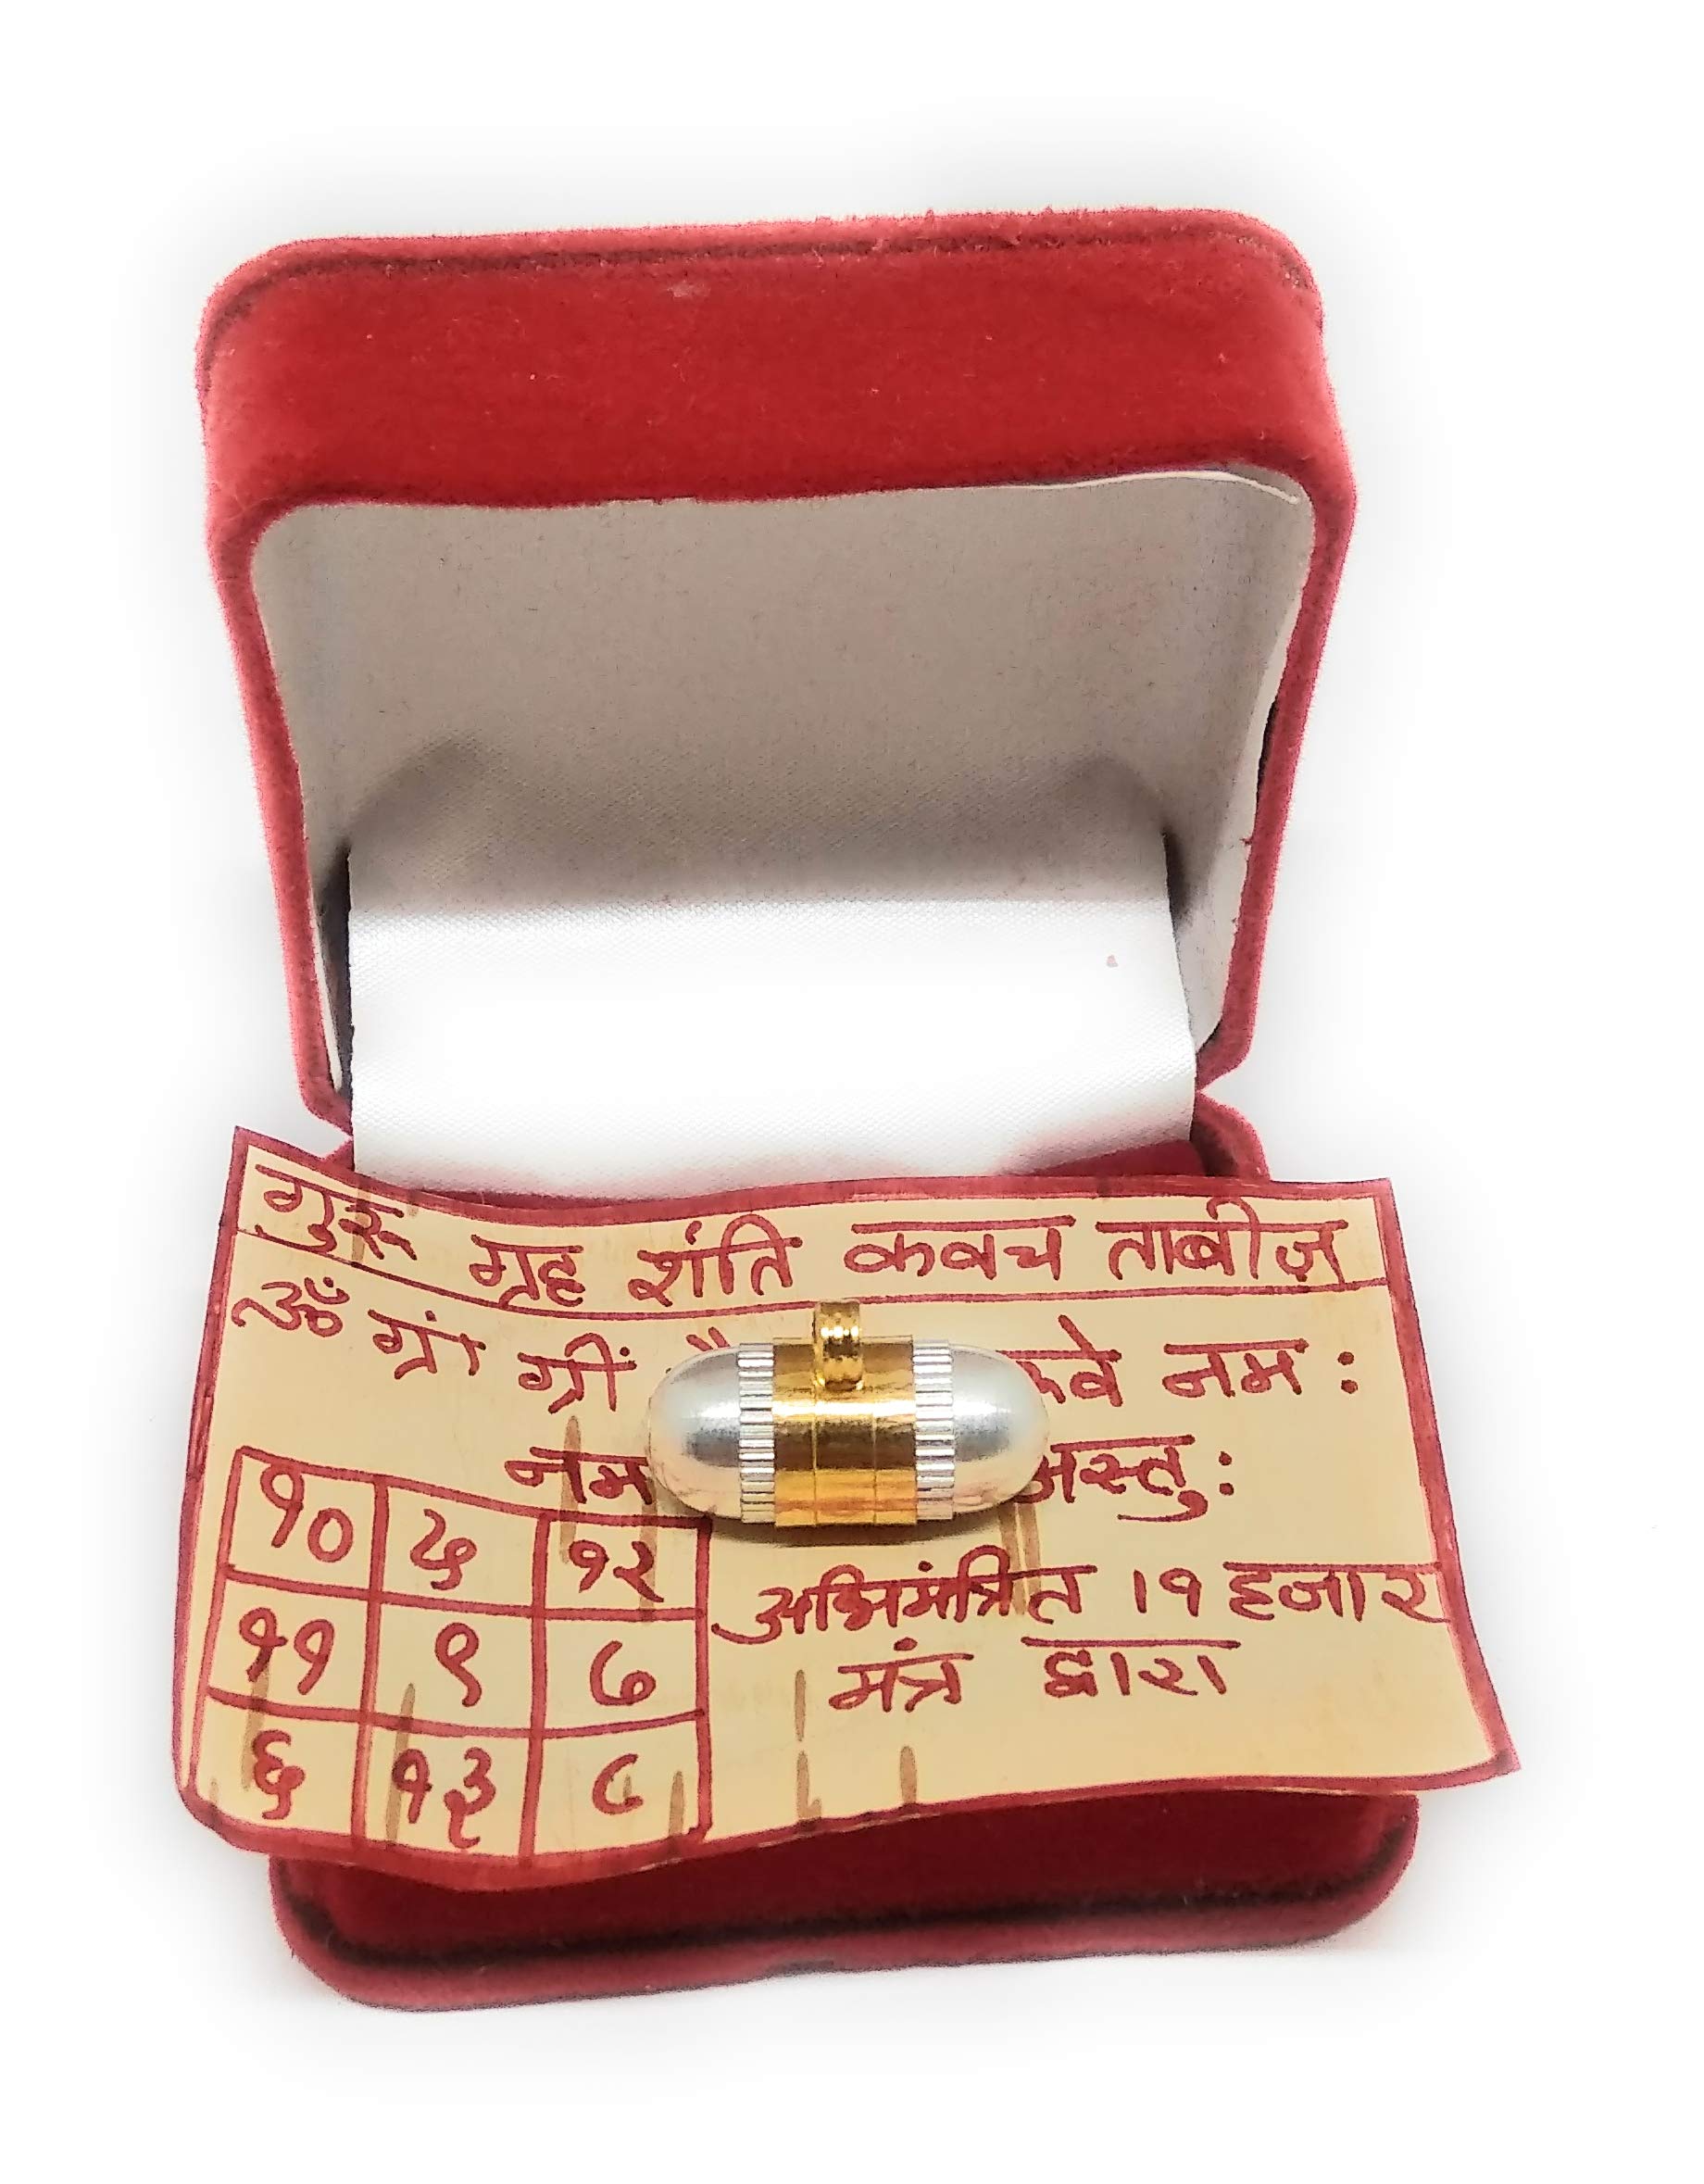 गुरू ग्रह शंति कवच ताबीज़
ॐ ग्रां ग्रीं नमः
अस्तुः
१० ५ १२
११ ९ ७
६ १३ ८
अभिमंत्रित १९ हजार
मंत्र द्वारा